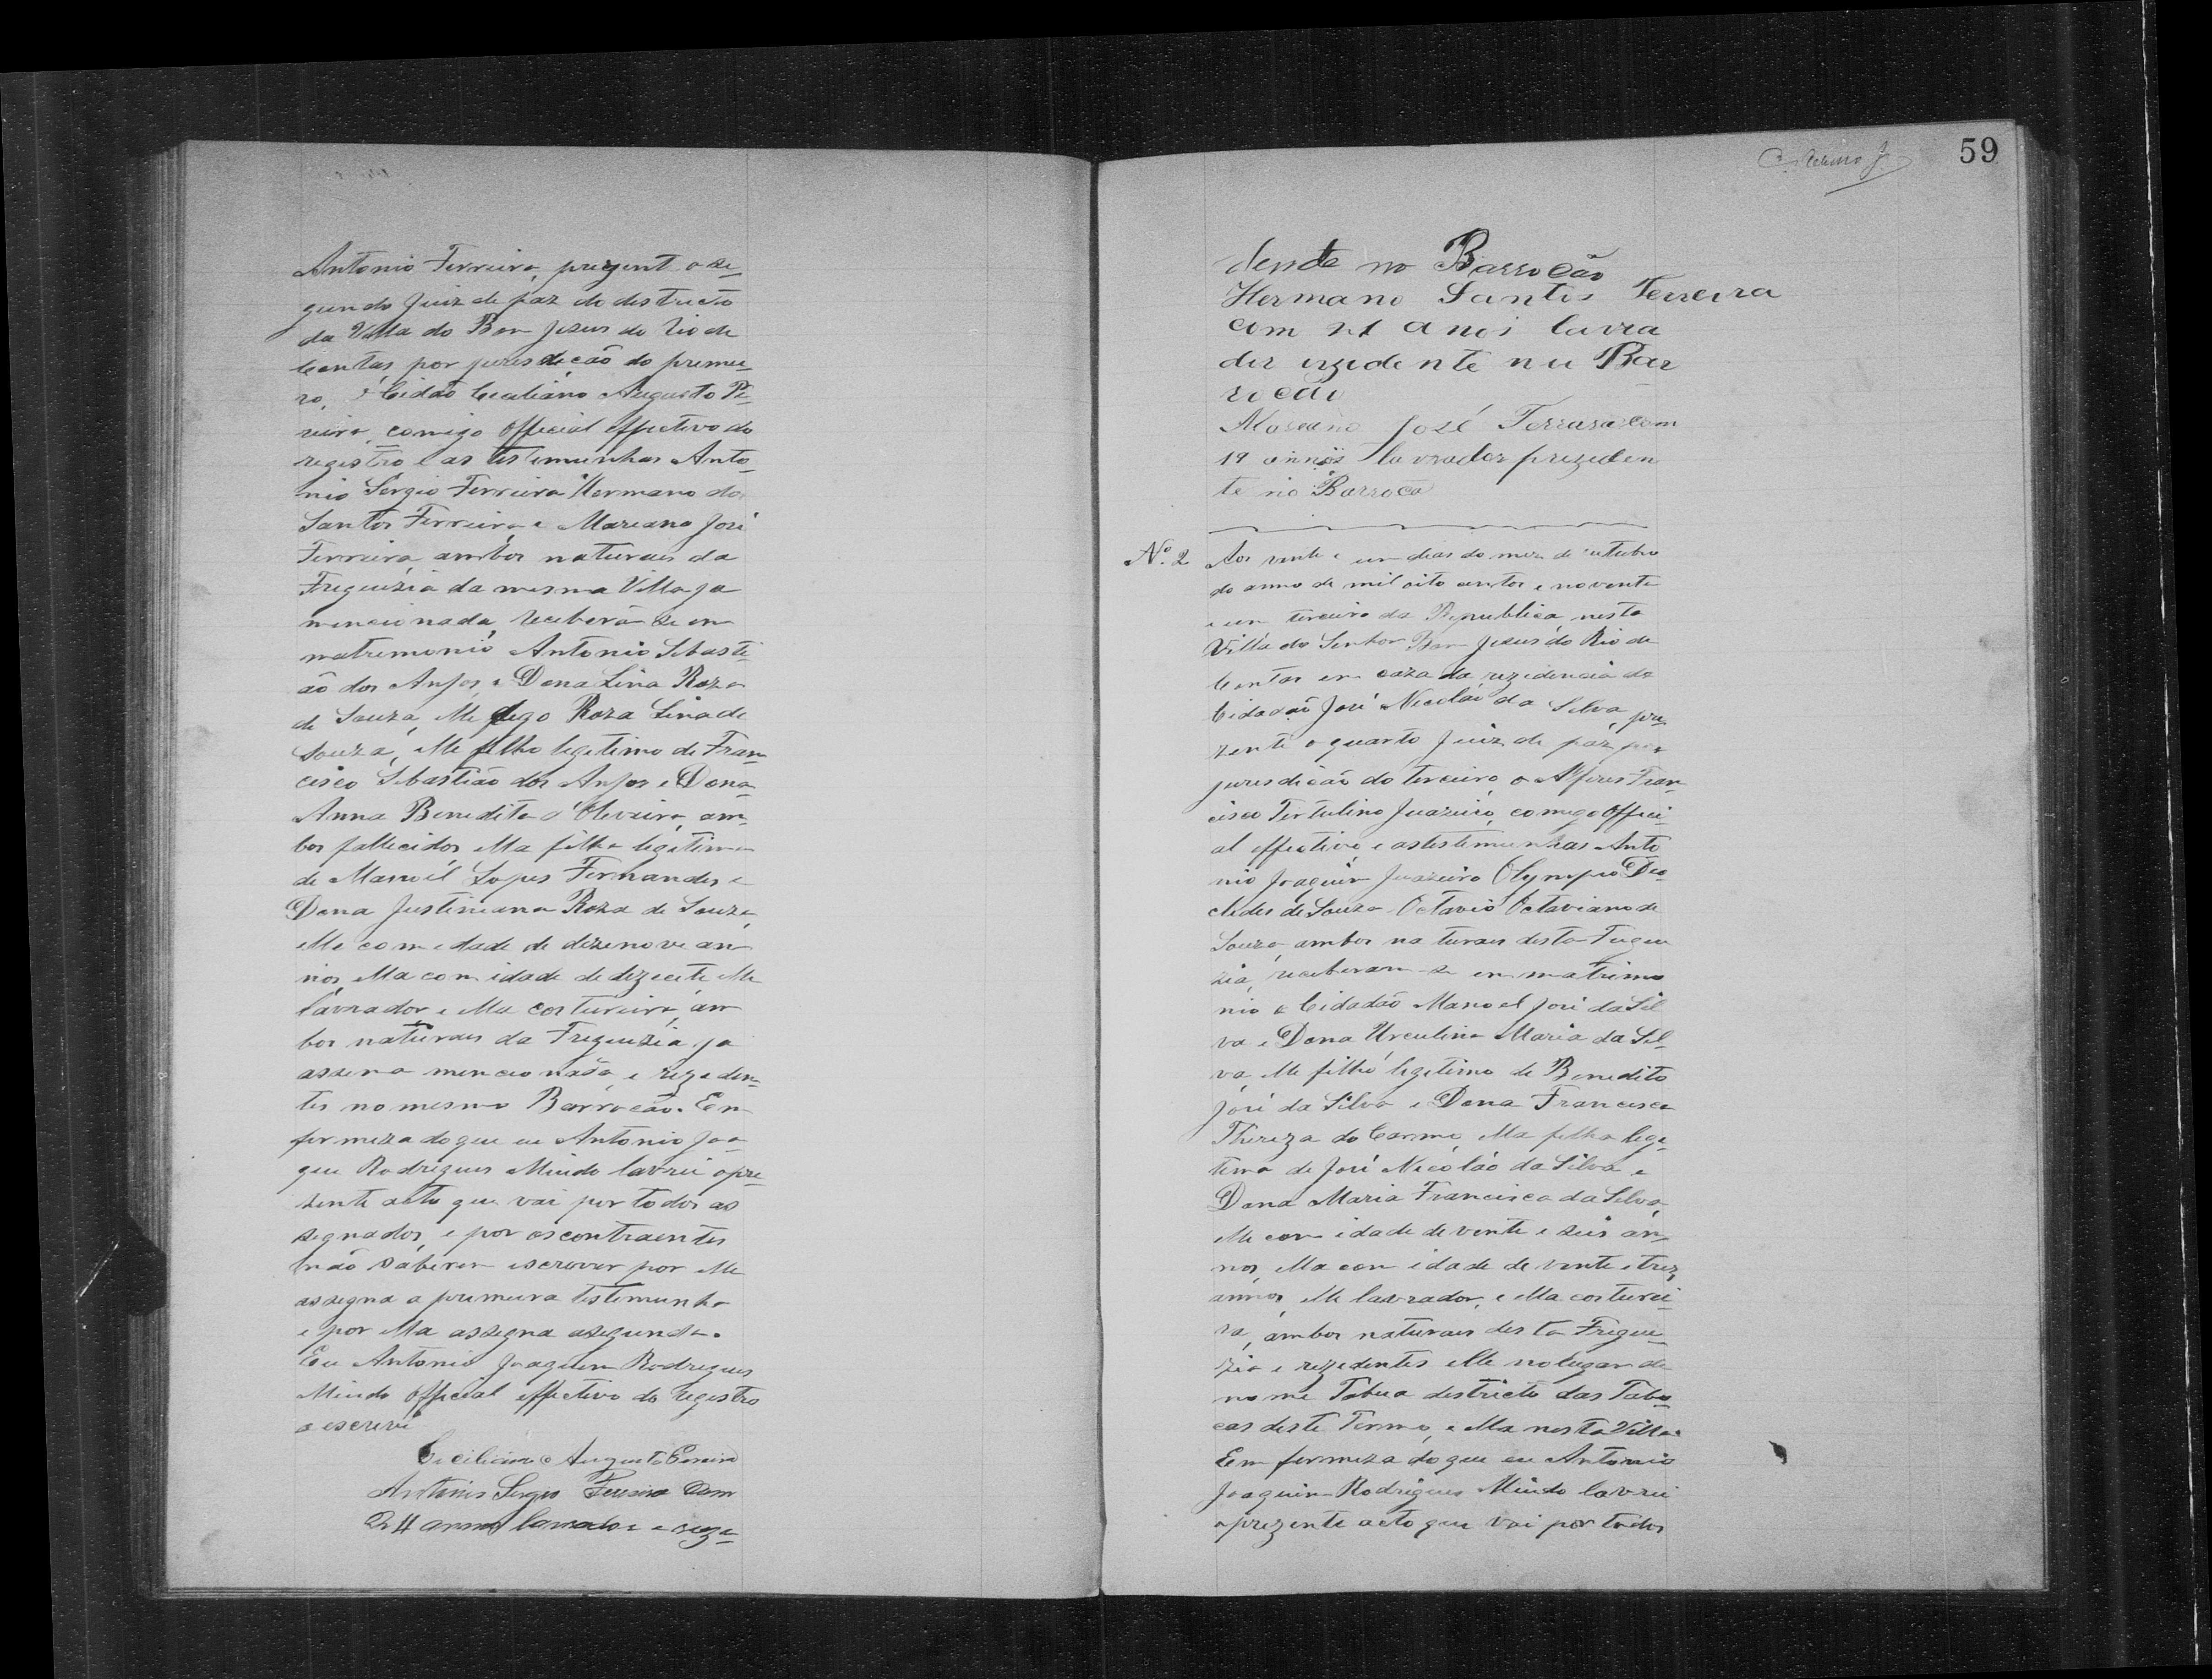 Antonio Ferreira, prezent o se
gundo Juiz de paz do destricto
da Villa do Bom Jesus do Rio de
Contas, por juresdeção do premei
ro, o Cidão Ceciliano Augusto Pe
reira, comigo Official effectivo do
registro e as testemunhas Anto
nio Sergio Ferreira Hermano dos
Santos Ferreira e Mareano José
Ferreira, ambos naturaes da
Freguezia da mesma Villa ja
mencionada, receberão se em
matremonio Antonio Sebasti
ão dos Anjos, e Dona Lina Roza
de Souza, Elle digo Roza Lina de
Souza, Elle filho legetimo de Fran
cisco Sebastião dos Anjos e Dona
Anna Benedita d'Oleveira, am
bos fallecidos Ella filha legitima
de Manoel Lopes Fernandes e
Dona Justiniana Roza de Souza,
elle com edade de dezenove an
nos, Ella com idade de dezecete, Elle
lavrador, e Ella costureira, am
bos naturaes da Freguezia ja
assema mencionada, e rezeden
tes no mesmo Barrocão. Em
fermeza do que eu Antonio Joa
qui Rodrigues Miudo lavrei o pre
zente acto que vai por todos as
segnados, e por os contraentes
não saberem escrever por elle
assegna a premeira testemunha
e por Ella assegna a segunda.
Eu Antonio Joaquim Rodrigues
Miudo Official effectivo do registro
o escrevi
Ceciliano Augusto Pereira
Antonio Sergio Ferreira Com
24 annos lavrador e reze
59
dente no Barrocão
Hermano Santos Ferreira
com 21 anos lavra
dor rezidente nu Bar
rocão
Mareano José Ferrera com
19 annos lavrador prezeden
te no Barroca
Nº. 2 Aos vente e um dias do mez de outubro
do anno de mil oito centos e novente
e um terceiro da Republica, nesta
Villa do Senhor Bom Jesus do Rio de
Contas em caza da rezidencia do
Cidadão José Nicoláo da Silva, pre
zente o quarto Juiz de paz por
juresdicão do terceiro, o Alferes Fran
cisco Tertulino Juazeiro, comigo Offici
al effectivo e as testemunhas Anto
nio Joaquim Juazeiro Olympio Dio
cledes de Souza Octavio Octaviano de
Souza, ambos naturaes desta Fregue
zia, receberam-se em matrimo
nio o Cidadão Manoel José da Sil
va e Dona Urculina Maria da Sil
va, Elle filho legetimo de Benedito
José da Silva e Dona Francisca
Thereza do Carmo, Ella filha lege
tima de José Nicoláo da Silva e
Dona Maria Francisca da Silva,
elle com idade de vente e seis an
nos, Ella com idade de vente e trez
annos, Elle lavrador, e Ella costurei
ra, ambos naturaes desta Fregue
zia e rezedentes elle no lugar de
nome Tabua destricto das Tabo
cas deste Termo, e Ella nesta Villa.
Em fermeza do que eu Antonio
Joaquim Rodrigues Miudo lavrei
o prezente acto que vai por todos